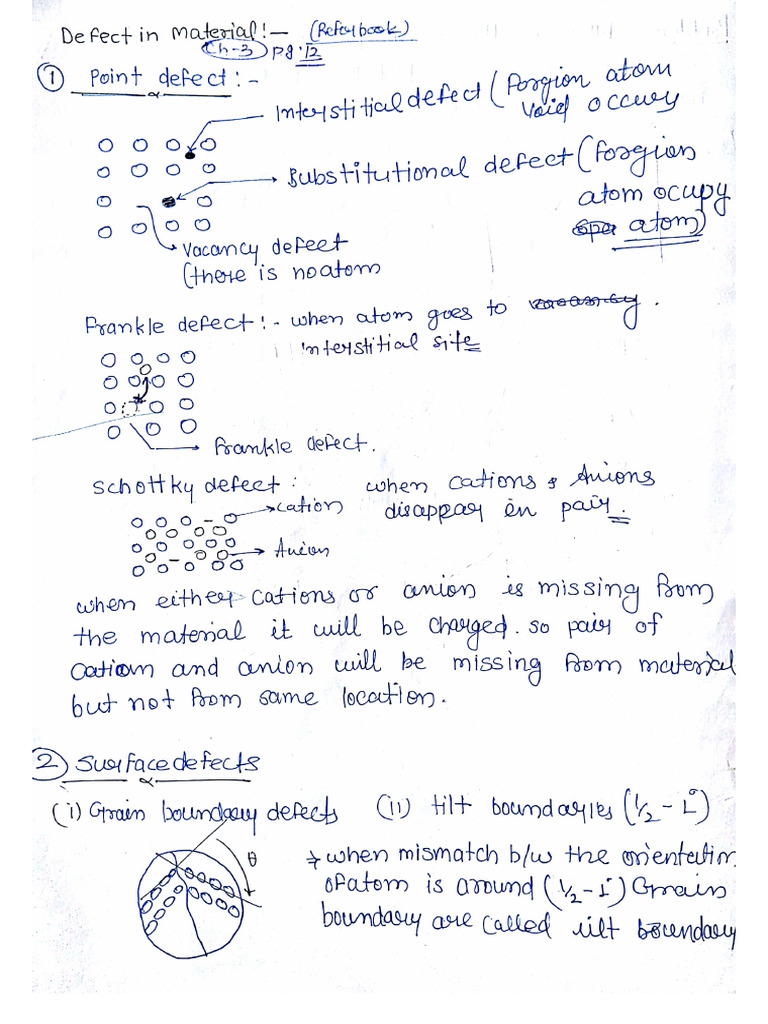 Defect in Material!— (Refer book)
Ch-3 pg:12
① Point defect:-
Interstitial defect (Forgion atom
void occupy
Substitutional defect (Forgion
atom occupy
atom)
Vacancy defect
(there is no atom
Frankle defect!- when atom goes to vacancy.
interstitial site
Frankle defect.
Schottky defect: when cations & Anions
disappear in pair.
Cation
Anion
when either cations or anion is missing from
the material it will be charged. so pair of
Cation and anion will be missing from material
but not from same location.
② Surface defects
(i) Grain boundary defects (ii) tilt boundaries (1/2 - 1°)
θ
→ when mismatch b/w the orientation
of atom is around (1/2 - 1°) Grain
boundary are called tilt boundary